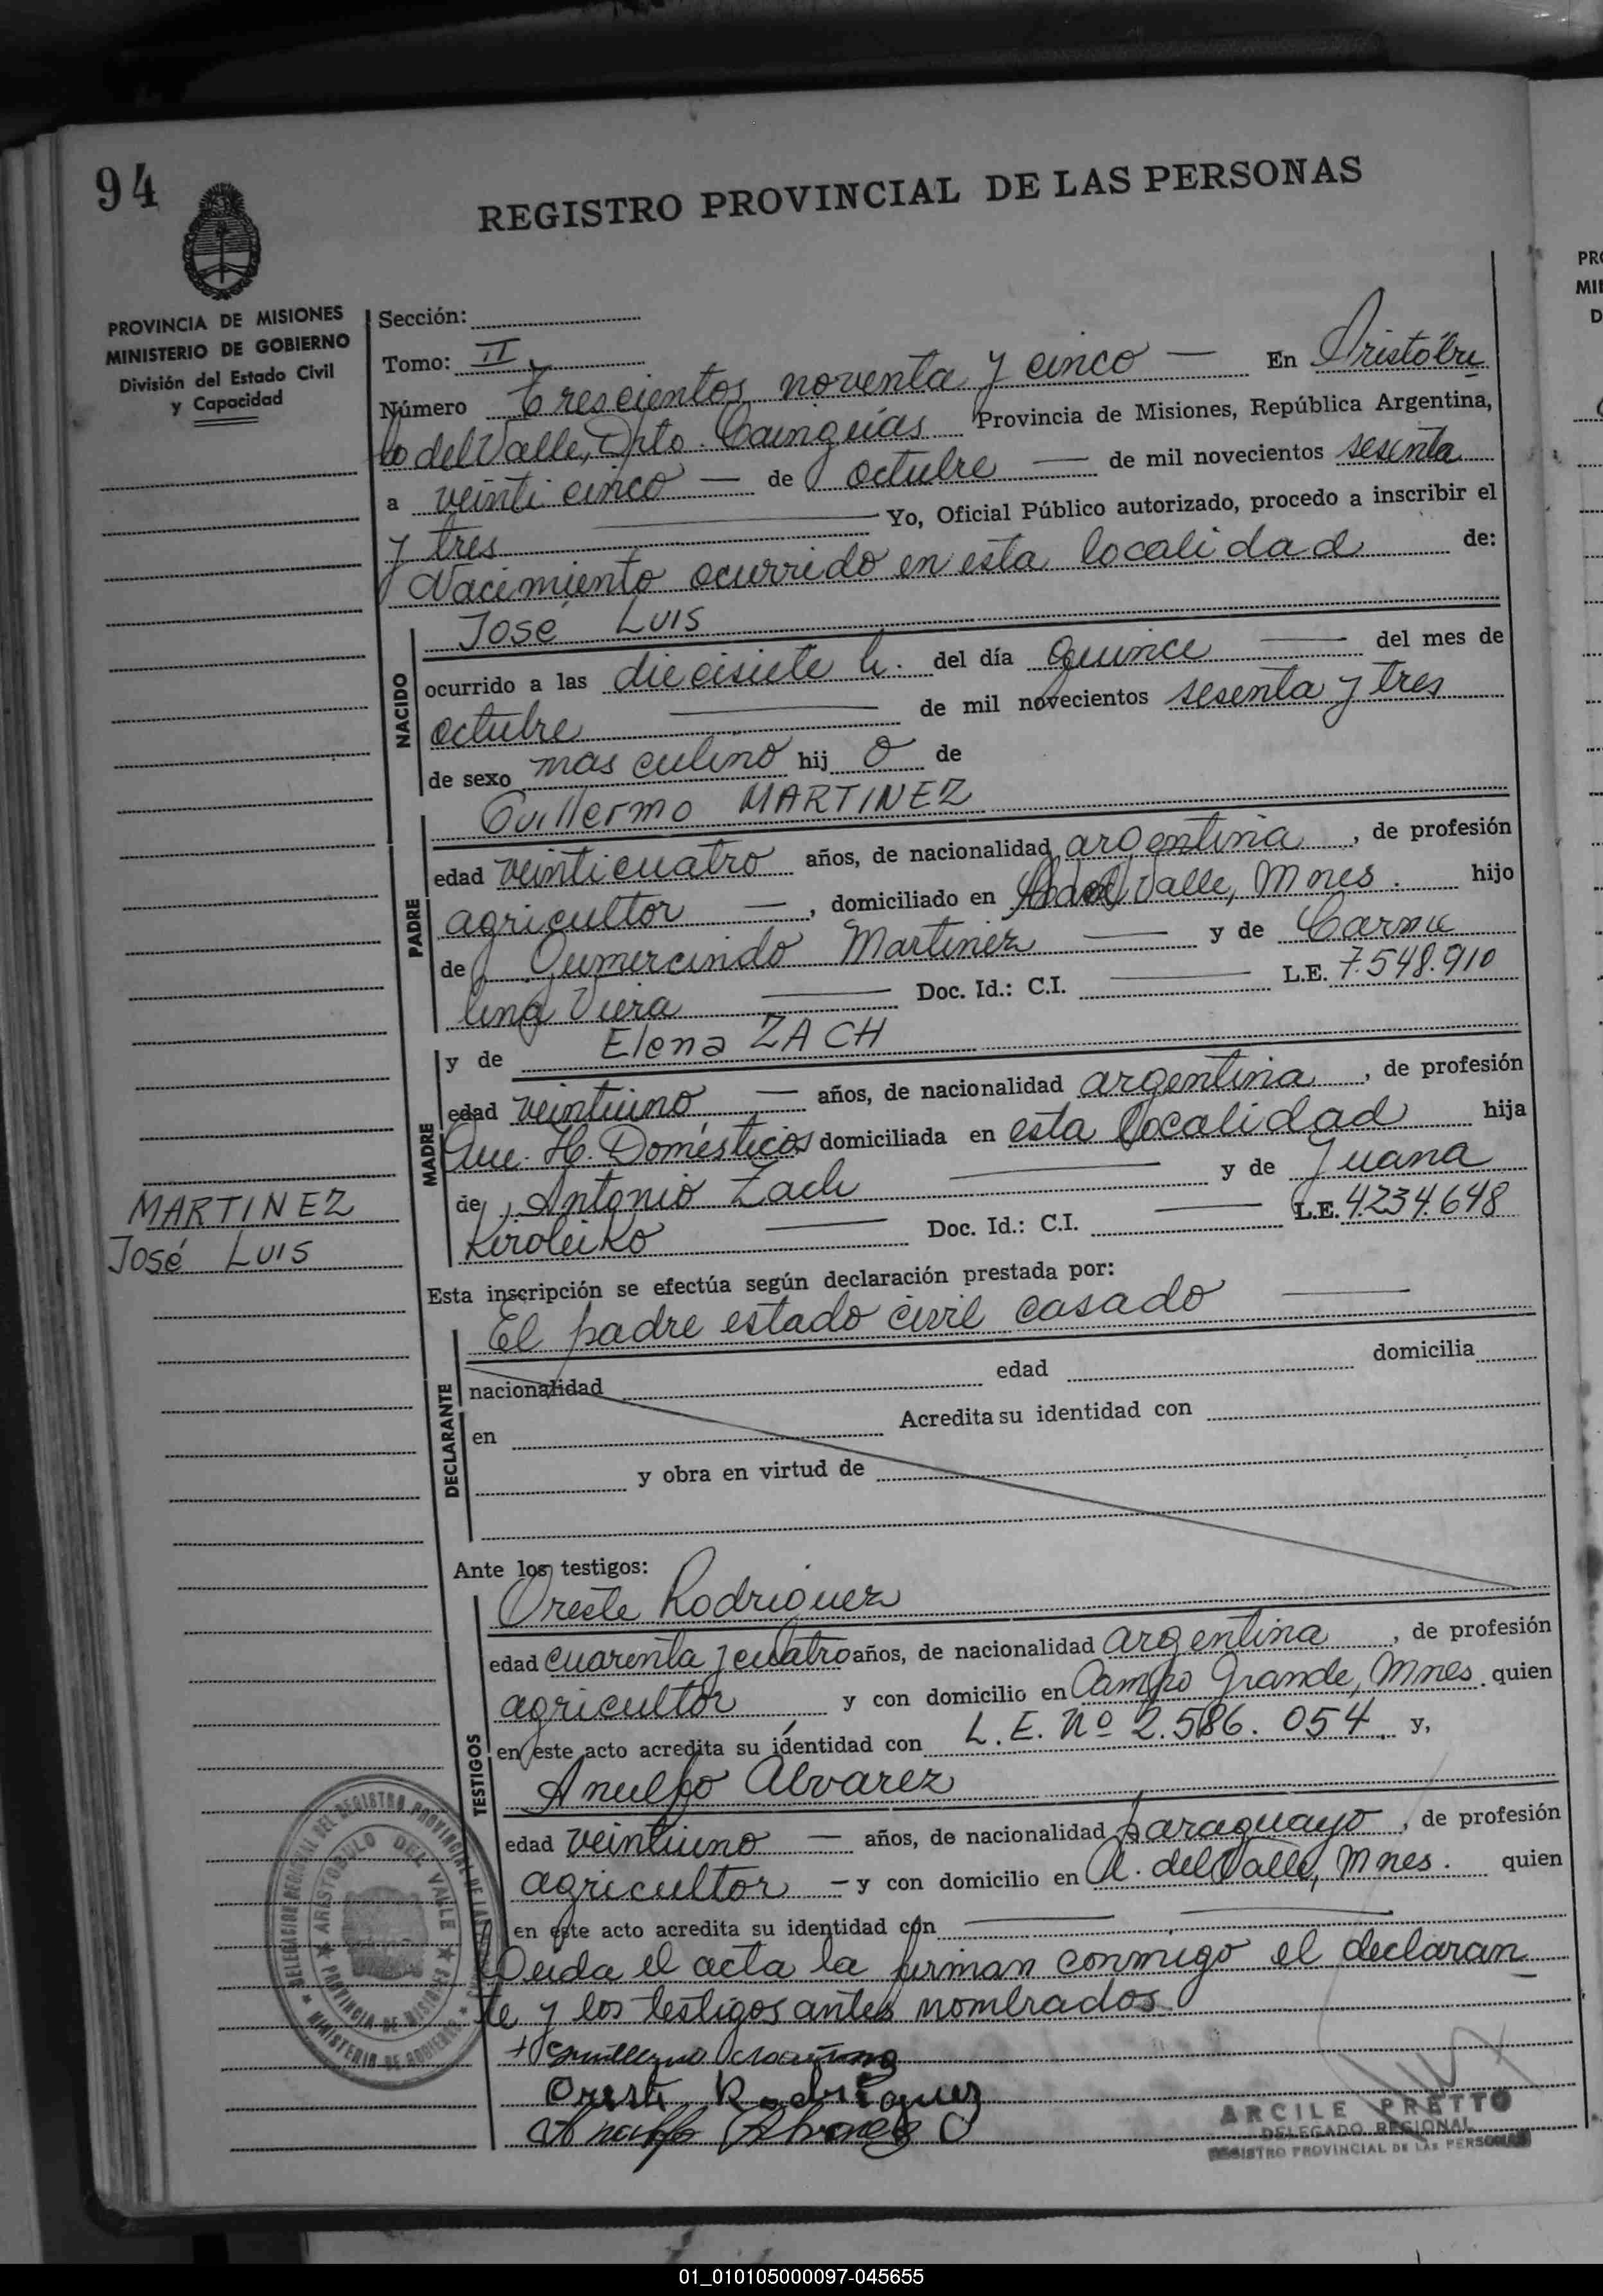 94
REGISTRO PROVINCIAL DE LAS PERSONAS
PROVINCIA DE MISIONES
MINISTERIO DE GOBIERNO
División del Estado Civil
y Capacidad
Sección:
Tomo: II
Número Trescientos noventa y cinco — En Aristóbu
lo del Valle, Dpto. Cainguás Provincia de Misiones, República Argentina,
a veinti cinco — de octubre — de mil novecientos sesenta
y tres — Yo, Oficial Público autorizado, procedo a inscribir el
Nacimiento ocurrido en esta localidad de:
NACIDO
José Luis
ocurrido a las diecisiete h. del día quince — del mes de
octubre — de mil novecientos sesenta y tres
de sexo masculino hij o de
PADRE
Guillermo MARTINEZ
edad veinticuatro años, de nacionalidad argentina, de profesión
agricultor —, domiciliado en A. del Valle, Mnes. hijo
de Gumercindo Martinez — y de Carme
lina Viera — Doc. Id.: C.I. — L.E. 7.548.910
MADRE
y de Elena ZACH
edad veintiuno — años, de nacionalidad argentina, de profesión
Que. H. Domésticos domiciliada en esta localidad hija
de Antonio Zach — y de Juana
Kiroleiko — Doc. Id.: C.I. — L.E. 4.234.648
MARTINEZ
José Luis
Esta inscripción se efectúa según declaración prestada por:
DECLARANTE
El padre estado civil casado —
nacionalidad edad domicilia
en Acredita su identidad con
y obra en virtud de
Ante los testigos:
TESTIGOS
Oreste Rodriguez
edad cuarenta y cuatro años, de nacionalidad argentina, de profesión
agricultor y con domicilio en Campo Grande, Mnes. quien
en este acto acredita su identidad con L.E. Nº 2.586.054 y,
Anulfo Alvarez
edad veintiuno — años, de nacionalidad paraguayo, de profesión
agricultor — y con domicilio en A. del Valle, Mnes. quien
en este acto acredita su identidad con —
Leida el acta la firman conmigo el declaran
te y los testigos antes nombrados.
DELEGACION REGIONAL DEL REGISTRO PROVINCIAL DE LAS
MINISTERIO DE GOBIERNO
ARISTOBULO DEL VALLE
PROVINCIA DE MISIONES
Oreste Rodriguez
ARCILE PRETTO
DELEGADO REGIONAL
REGISTRO PROVINCIAL DE LAS PERSONAS
01_010105000097-045655